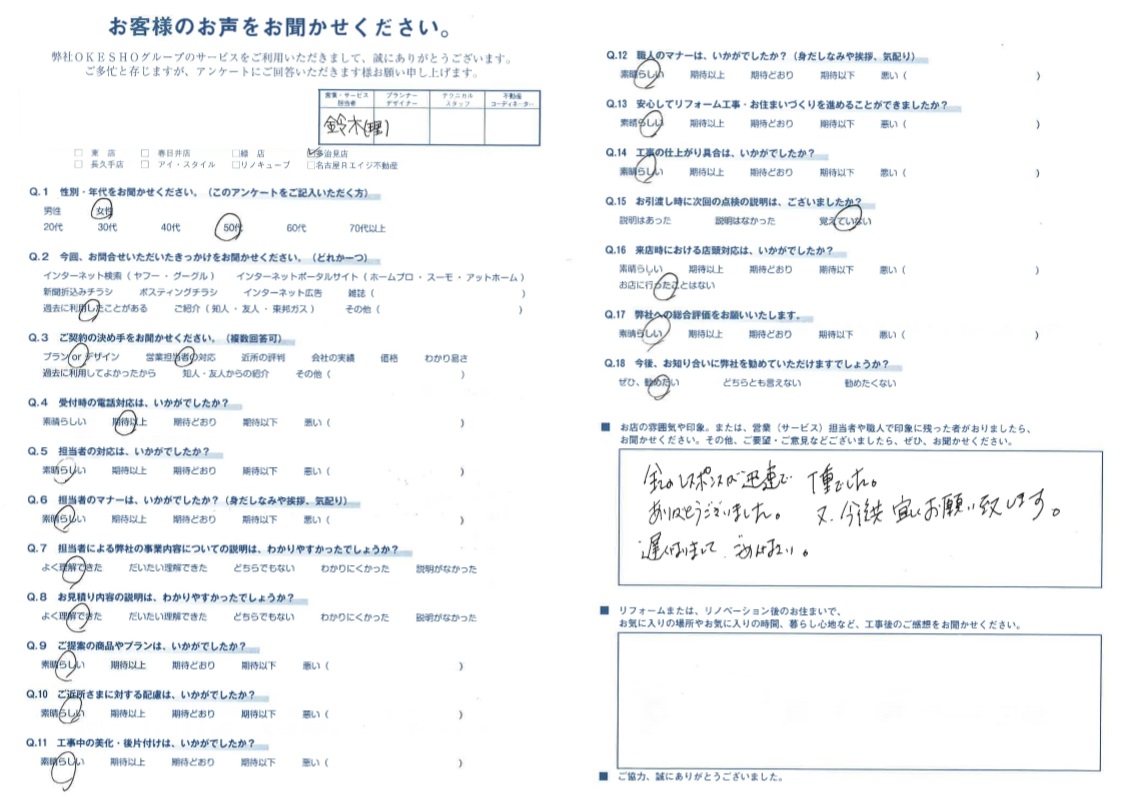 お客様のお声をお聞かせください。
弊社OKESHOグループのサービスをご利用いただきまして、誠にありがとうございます。
ご多忙と存じますが、アンケートにご回答いただきます様お願い申し上げます。
営業・サービス担当者 プランナーデザイナー テクニカルスタッフ 不動産コーディネーター
鈴木(理)
□ 東 店 □ 春日井店 □緑 店 ☑多治見店
□ 長久手店 □ アイ・スタイル □リノキューブ □名古屋Rエイジ不動産
Q.1 性別・年代をお聞かせください。（このアンケートをご記入いただく方）
男性 女性
20代 30代 40代 50代 60代 70代以上
Q.2 今回、お問合せいただいたきっかけをお聞かせください。（どれか一つ）
インターネット検索（ ヤフー ・ グーグル ） インターネットポータルサイト（ ホームプロ ・ スーモ ・ アットホーム ）
新聞折込みチラシ ポスティングチラシ インターネット広告 雑誌（ ）
過去に利用したことがある ご紹介（ 知人 ・ 友人 ・ 東邦ガス ） その他（ ）
Q.3 ご契約の決め手をお聞かせください。（複数回答可）
プラン or デザイン 営業担当者の対応 近所の評判 会社の実績 価格 わかり易さ
過去に利用してよかったから 知人・友人からの紹介 その他（ ）
Q.4 受付時の電話対応は、いかがでしたか？
素晴らしい 期待以上 期待どおり 期待以下 悪い（ ）
Q.5 担当者の対応は、いかがでしたか？
素晴らしい 期待以上 期待どおり 期待以下 悪い（ ）
Q.6 担当者のマナーは、いかがでしたか？（身だしなみや挨拶、気配り）
素晴らしい 期待以上 期待どおり 期待以下 悪い（ ）
Q.7 担当者による弊社の事業内容についての説明は、わかりやすかったでしょうか？
よく理解できた だいたい理解できた どちらでもない わかりにくかった 説明がなかった
Q.8 お見積り内容の説明は、わかりやすかったでしょうか？
よく理解できた だいたい理解できた どちらでもない わかりにくかった 説明がなかった
Q.9 ご提案の商品やプランは、いかがでしたか？
素晴らしい 期待以上 期待どおり 期待以下 悪い（ ）
Q.10 ご近所さまに対する配慮は、いかがでしたか？
素晴らしい 期待以上 期待どおり 期待以下 悪い（ ）
Q.11 工事中の美化・後片付けは、いかがでしたか？
素晴らしい 期待以上 期待どおり 期待以下 悪い（ ）
Q.12 職人のマナーは、いかがでしたか？（身だしなみや挨拶、気配り）
素晴らしい 期待以上 期待どおり 期待以下 悪い（ ）
Q.13 安心してリフォーム工事・お住まいづくりを進めることができましたか？
素晴らしい 期待以上 期待どおり 期待以下 悪い（ ）
Q.14 工事の仕上がり具合は、いかがでしたか？
素晴らしい 期待以上 期待どおり 期待以下 悪い（ ）
Q.15 お引渡し時に次回の点検の説明は、ございましたか？
説明はあった 説明はなかった 覚えていない
Q.16 来店時における店頭対応は、いかがでしたか？
素晴らしい 期待以上 期待どおり 期待以下 悪い（ ）
お店に行ったことはない
Q.17 弊社への総合評価をお願いいたします。
素晴らしい 期待以上 期待どおり 期待以下 悪い（ ）
Q.18 今後、お知り合いに弊社を勧めていただけますでしょうか？
ぜひ、勧めたい どちらとも言えない 勧めたくない
■ お店の雰囲気や印象。または、営業（サービス）担当者や職人で印象に残った者がおりましたら、
お聞かせください。その他、ご要望・ご意見などございましたら、ぜひ、お聞かせください。
レスポンスが迅速で 丁重でした。
ありがとうございました。 又、今後共 宜しくお願い致します。
遅くなりまして ごめんなさい。
■ リフォームまたは、リノベーション後のお住まいで、
お気に入りの場所やお気に入りの時間、暮らし心地など、工事後のご感想をお聞かせください。
■ ご協力、誠にありがとうございました。